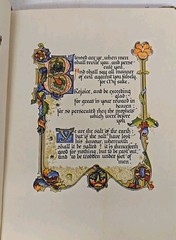 Blessed are ye, when men
shall revile you and perse
cute you.
And shall say all manner
of evil against you falsely
for My sake.
Rejoice, and be exceeding
glad:
for great is your reward in
heaven:
for so persecuted they the prophets
which were before
you.
Ye are the salt of the earth:
but if the salt have lost
his savour, wherewith
shall it be salted? it is thenceforth
good for nothing, but to be cast out,
and to be trodden under foot
of men.